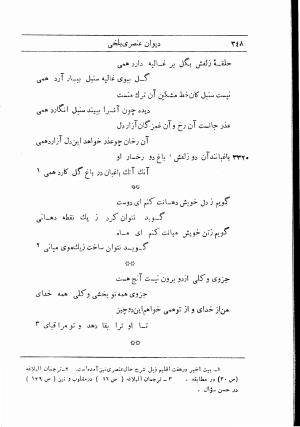 ۳۴۸ دیوان عنصری بلخی
حلقهٔ زلفش بگل بر غالیه دارد همی
گل ببوی غالیه سنبل ببار آرد همی
نیست سنبل کان خط مشکین آن ترک منست
دیده چون آنرا ببیند سنبل انگارد همی
عذر جانست آن رخ و آن غمزگان آزار دل
آن رخان چو عذر خواهد این دل آزارد همی
۳۳۲۰ باغبانند آن دو زلفش باغ دو رخسار او
آنک آنک باغبان در باغ گل کارد همی ۱
**
گویم ز دل خویش دهانت کنم ای دوست
گوید نتوان کرد ز یک نقطه دهانی
گویم ز تن خویش میانت کنم ای ماه
گوید نتوان ساخت ز یک موی میانی ۲
**
جزوی و کلی از دو برون نیست آنچ هست
جزوی همه تو بخشی و کلی همه خدای
من از خدای و از تو همی خواهم این دو چیز
تا او ترا بقا دهد و تو مرا قبای ۳
**
۱- بیت اخیر در هفت اقلیم ذیل شرح حال عنصری نیز آمده است. ۲- ترجمان البلاغه
(ص ۳۰) در مطابقه. ۳- ترجمان البلاغه (ص ۹۶) در مقلوب و نیز (ص ۱۲۹)
در حسن سؤال.